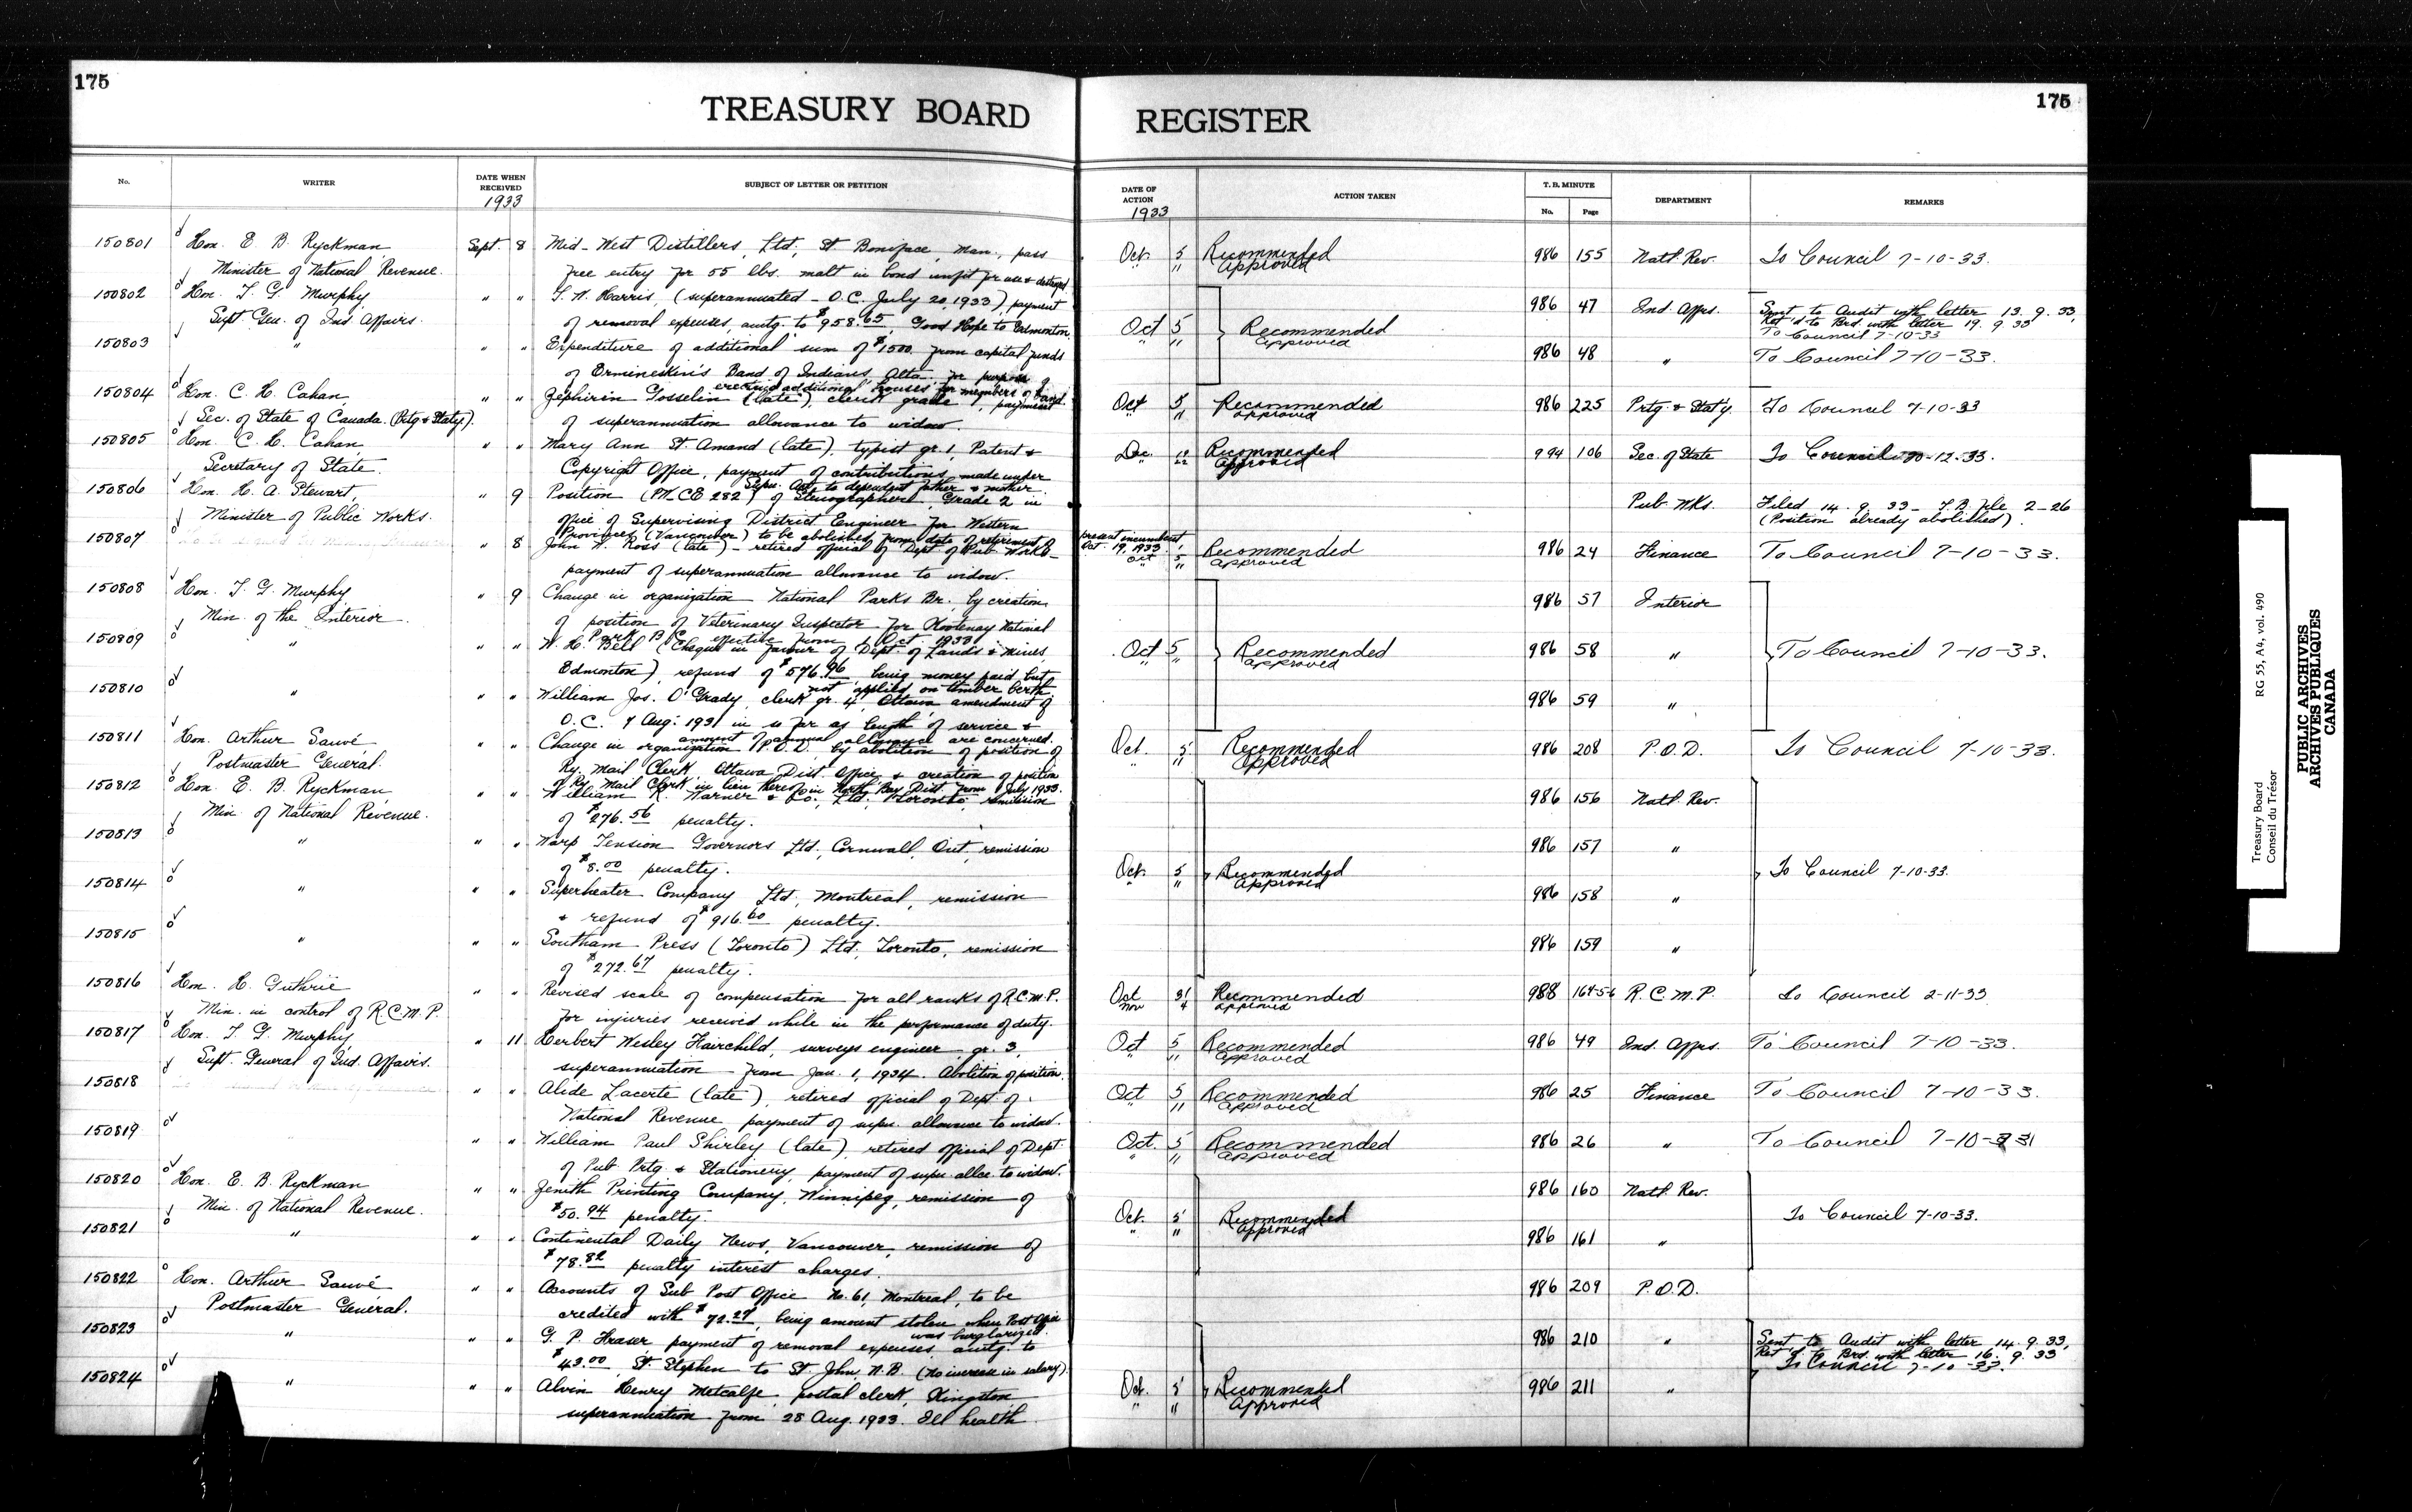 175
TREASURY BOARD REGISTER
175
No. WRITER DATE WHEN RECEIVED SUBJECT OF LETTER OR PETITION DATE OF ACTION ACTION TAKEN T. B. MINUTE DEPARTMENT REMARKS
1933 1933 No. Page
150801 Hon. E. B. Ryckman, Sept. 8 Mid-West Distillers, Ltd., St. Boniface, Man., pass Oct. 5 Recommended 986 155 Natl. Rev. To Council 7-10-33.
Minister of National Revenue. free entry for 55 lbs. malt in bond unfit for use & destroyed " 11 Approved
150802 Hon. T. G. Murphy, " " (superannuated - O.C. July 20, 1933), payment 986 47 Ind. Affrs. Sent to Audit with letter 13. 9. 33,
Supt. Gen. of Ind. Affairs. of removal expenses, amtg. to $958.65, Good Hope to Edmonton. Oct 5 Recommended Ret'd to Brd. with letter 19. 9. 33
" 11 Approved To Council 7-10-33
150803 " " " Expenditure of additional sum of $1500. from capital funds 986 48 " To Council 7-10-33.
of Ermineskin's Band of Indians, Alta. for purpose of
erecting additional houses for members of band.
150804 Hon. C. H. Cahan, " " Zephirin Gosselin (late), clerk grade 1, payment Oct 5 Recommended 986 225 Prtg. & Stat'y. To Council 7-10-33
Sec. of State of Canada. (Prtg & Staty). of superannuation allowance to widow. " 11 Approved
150805 Hon. C. H. Cahan, " " Mary Ann St. Amand (late), typist gr. 1, Patent & Dec. Recommended 994 106 Sec. of State To Council -12-33.
Secretary of State. Copyright Office, payment of contributions made under Approved
Supn. Act to dependent father & mother.
150806 Hon. H. A. Stewart, " 9 Position (M CE 282) of Stenographer, Grade 2 in Pub. Wks. Filed 14. 9. 33 - T.B. File 2-26
Minister of Public Works. office of Supervising District Engineer for Western (Position already abolished).
Provinces (Vancouver) to be abolished from date of retirement of present incumbent
Oct. 19, 1933.
150807 " 8 John W. Ross (late) - retired official of Dept. of Pub. Works - Oct 5 Recommended 986 24 Finance To Council 7-10-33.
payment of superannuation allowance to widow. " 11 Approved
150808 Hon. T. G. Murphy " 9 Change in organization National Parks Br. by creation 986 57 Interior
Min. of the Interior. of position of Veterinary Inspector for Kootenay National
Park B.C. effective from 1 Oct 1933
150809 " " " W. H. Bell (Cheque in favour of Dept. of Lands & Mines, Oct 5 Recommended 986 58 " To Council 7-10-33.
Edmonton), refund of $576.96 being money paid but " 11 Approved
not applied on timber berth.
150810 " " " William Jos. O'Grady, clerk gr. 4, Ottawa amendment of 986 59 "
O.C. 7 Aug. 1931 in so far as length of service &
amount of annual allowance are concerned.
150811 Hon. Arthur Sauvé, " " Change in organization P.O.D. by abolition of position of Oct. 5 Recommended 986 208 P.O.D. To Council 7-10-33.
Postmaster General. Ry. Mail Clerk, Ottawa Dist. Office & creation of position " 11 Approved
of Ry. Mail Clerk in lieu thereof in North Bay Dist. from 1 July 1933.
150812 Hon. E. B. Ryckman " " William R. Warner & Co., Ltd. Toronto, remission 986 156 Natl. Rev.
Min. of National Revenue. of $276.56 penalty.
150813 " " " Warp Tension Governors Ltd., Cornwall, Ont., remission 986 157 "
of $8.00 penalty. Oct. 5 Recommended To Council 7-10-33.
" 11 Approved
150814 " " " Superheater Company Ltd., Montreal, remission 986 158 "
& refund of $916.60 penalty.
150815 " " " Southam Press (Toronto) Ltd., Toronto, remission 986 159 "
of $272.67 penalty.
150816 Hon. H. Guthrie " " Revised scale of compensation for all ranks of R.C.M.P. Oct 31 Recommended 988 164-5-6 R.C.M.P. To Council 2-11-33
Min. in control of R.C.M.P. for injuries received while in the performance of duty. Nov 4 Approved
150817 Hon. T. G. Murphy, " 11 Herbert Wesley Fairchild, surveys engineer, gr. 3, Oct 5 Recommended 986 49 Ind. Affrs. To Council 7-10-33.
Supt. General of Ind. Affairs. superannuation from Jan. 1, 1934. Abolition of position. " 11 Approved
150818 " " Alide Lacerte (late), retired official of Dept. of Oct 5 Recommended 986 25 Finance To Council 7-10-33.
National Revenue, payment of supn. allowance to widow. " 11 Approved
150819 " " William Paul Shirley (late), retired official of Dept Oct. 5 Recommended 986 26 " To Council 7-10-
of Pub. Prtg. & Stationery, payment of supn. allce. to widow. " 11 Approved
150820 Hon. E. B. Ryckman " " Zenith Printing Company, Winnipeg, remission of 986 160 Natl. Rev.
Min. of National Revenue. $50.94 penalty. Oct. 5 Recommended To Council 7-10-33.
" 11 Approved
150821 " " " Continental Daily News, Vancouver, remission of 986 161 "
$78.82 penalty interest charges.
150822 Hon. Arthur Sauvé " " Accounts of Sub Post Office No. 61, Montreal, to be 986 209 P.O.D.
Postmaster General. credited with $72.27, being amount stolen when Post Office
was burglarized.
150823 " " " G. P. Fraser, payment of removal expenses amtg. to 986 210 " Sent to Audit with letter 14. 9. 33,
$43.00 St. Stephen to St. John, N.B. (No increase in salary). Ret'd to Brd. with letter 16. 9. 33
To Council 7-10-33.
150824 " " " Alvin Henry Metcalfe, postal clerk, Kingston Oct. 5 Recommended 986 211 "
superannuation from 28 Aug. 1933. Ill health " 11 Approved
Treasury Board RG 55, A4, vol. 490
Conseil du Trésor
PUBLIC ARCHIVES
ARCHIVES PUBLIQUES
CANADA